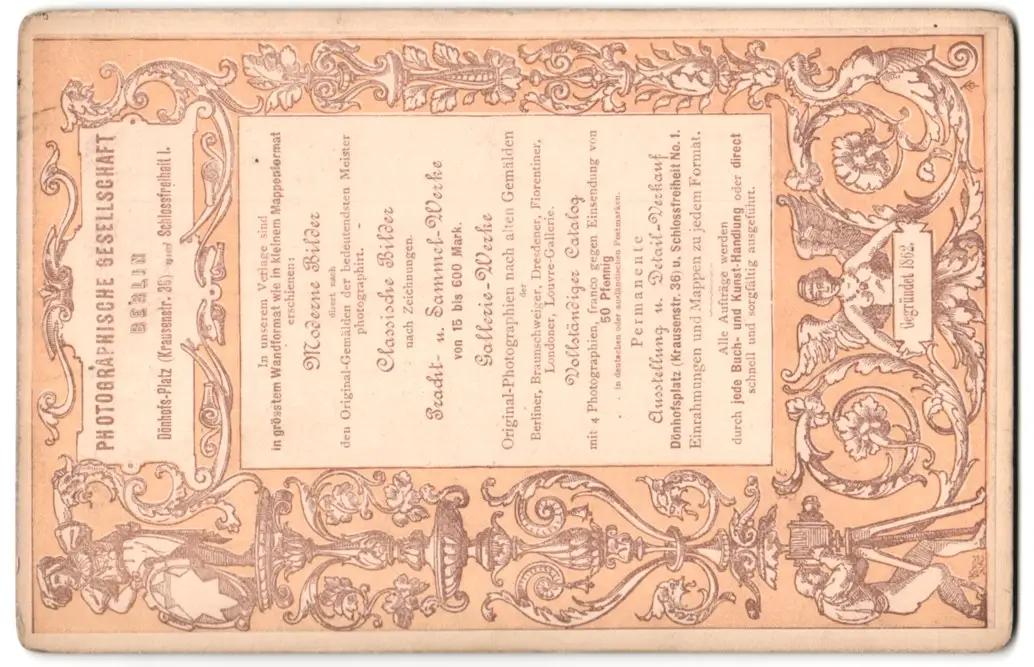 PHOTOGRAPHISCHE GESELLSCHAFT
BERLIN
Dönhofs-Platz (Krausenstr. 36) und Schlossfreiheit I.
In unserem Verlage sind
in grösstem Wandformat wie in kleinem Mappenformat
erschienen:
Moderne Bilder
direct nach
den Original-Gemälden der bedeutendsten Meister
photographirt.
Classische Bilder
nach Zeichnungen.
Pracht- u. Sammel-Werke
von 15 bis 600 Mark.
Gallerie-Werke
Original-Photographien nach alten Gemälden
der
Berliner, Braunschweiger, Dresdener, Florentiner,
Londoner, Louvre-Gallerie.
Vollständiger Catalog
mit 4 Photographien, franco gegen Einsendung von
50 Pfennig
in deutschen oder ausländischen Postmarken.
Permanente
Ausstellung u. Detail-Verkauf
Dönhofsplatz (Krausenstr. 36) u. Schlossfreiheit No. 1.
Einrahmungen und Mappen zu jedem Format.
Alle Aufträge werden
durch jede Buch- und Kunst-Handlung oder direct
schnell und sorgfältig ausgeführt.
Gegründet 1862.